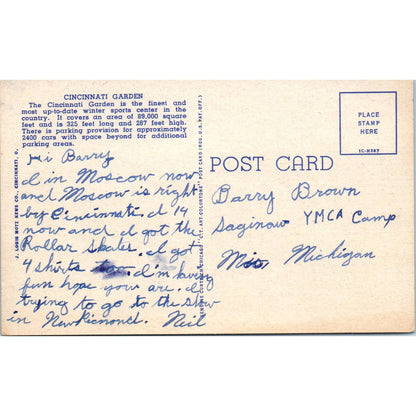 CINCINNATI GARDEN
The Cincinnati Garden is the finest and
most up-to-date winter sports center in the
country. It covers an area of 89,000 square
feet and is 325 feet long and 287 feet high.
There is parking provision for approximately
2400 cars with space beyond for additional
parking areas.
Hi Barry
I in Moscow now
and Moscow is right
by Cincinnati. I 14
now and I got the
Rollar Skates. I got
4 shirts I'm having
fun hope you are. I
trying to go to the show
in New Ricmond. Neil
J. LOUIS MOTZ NEWS CO., CINCINNATI, O.
GENUINE CURTEICH-CHICAGO "C.T. ART-COLORTONE" POST CARD (REG. U.S. PAT. OFF.)
POST CARD
PLACE
STAMP
HERE
1C-H387
Barry Brown
Saginaw YMCA Camp
Michigan